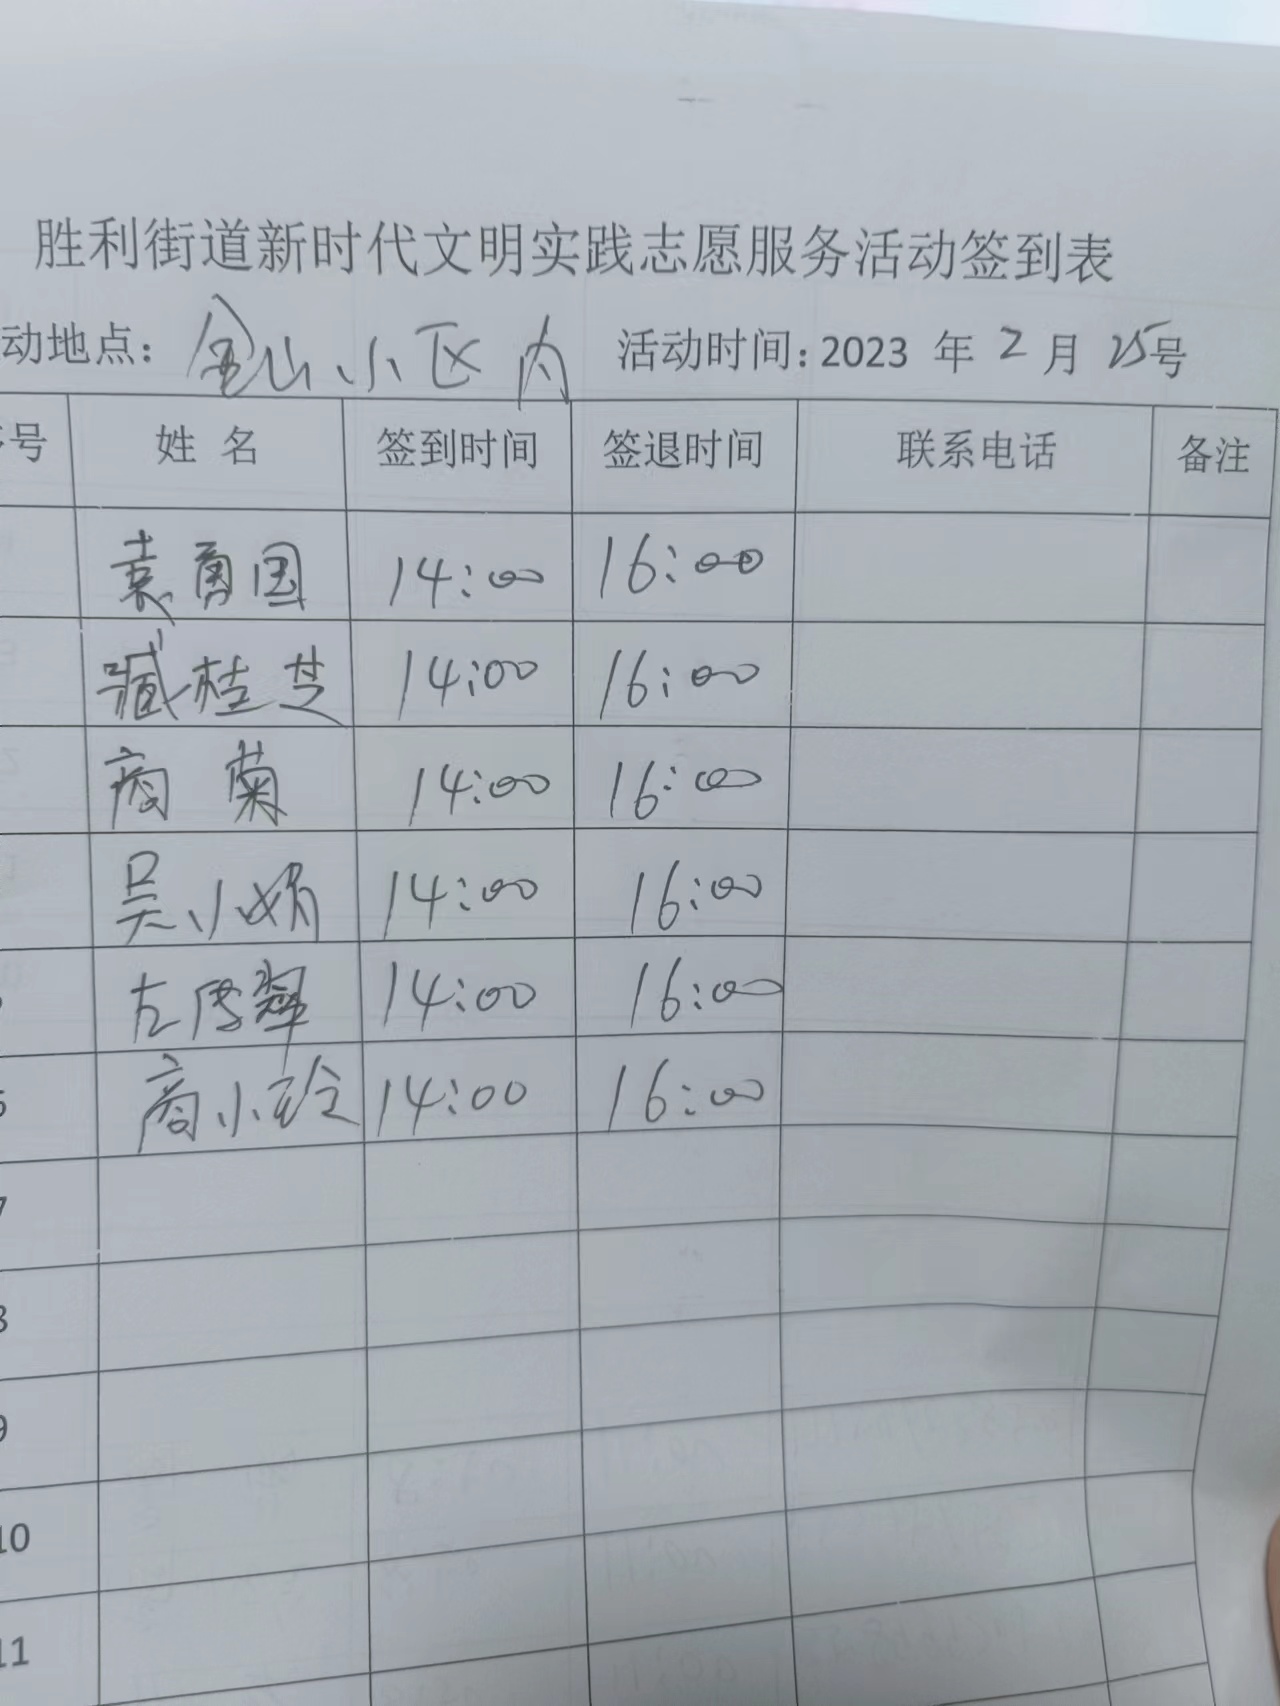 胜利街道新时代文明实践志愿服务活动签到表
动地点：金山小区内 活动时间：2023 年 2 月 25号
号 姓 名 签到时间 签退时间 联系电话 备注
袁勇国 14:00 16:00
臧桂芝 14:00 16:00
商菊 14:00 16:00
吴小娟 14:00 16:00
左传翠 14:00 16:00
商小玲 14:00 16:00
7
8
9
10
11